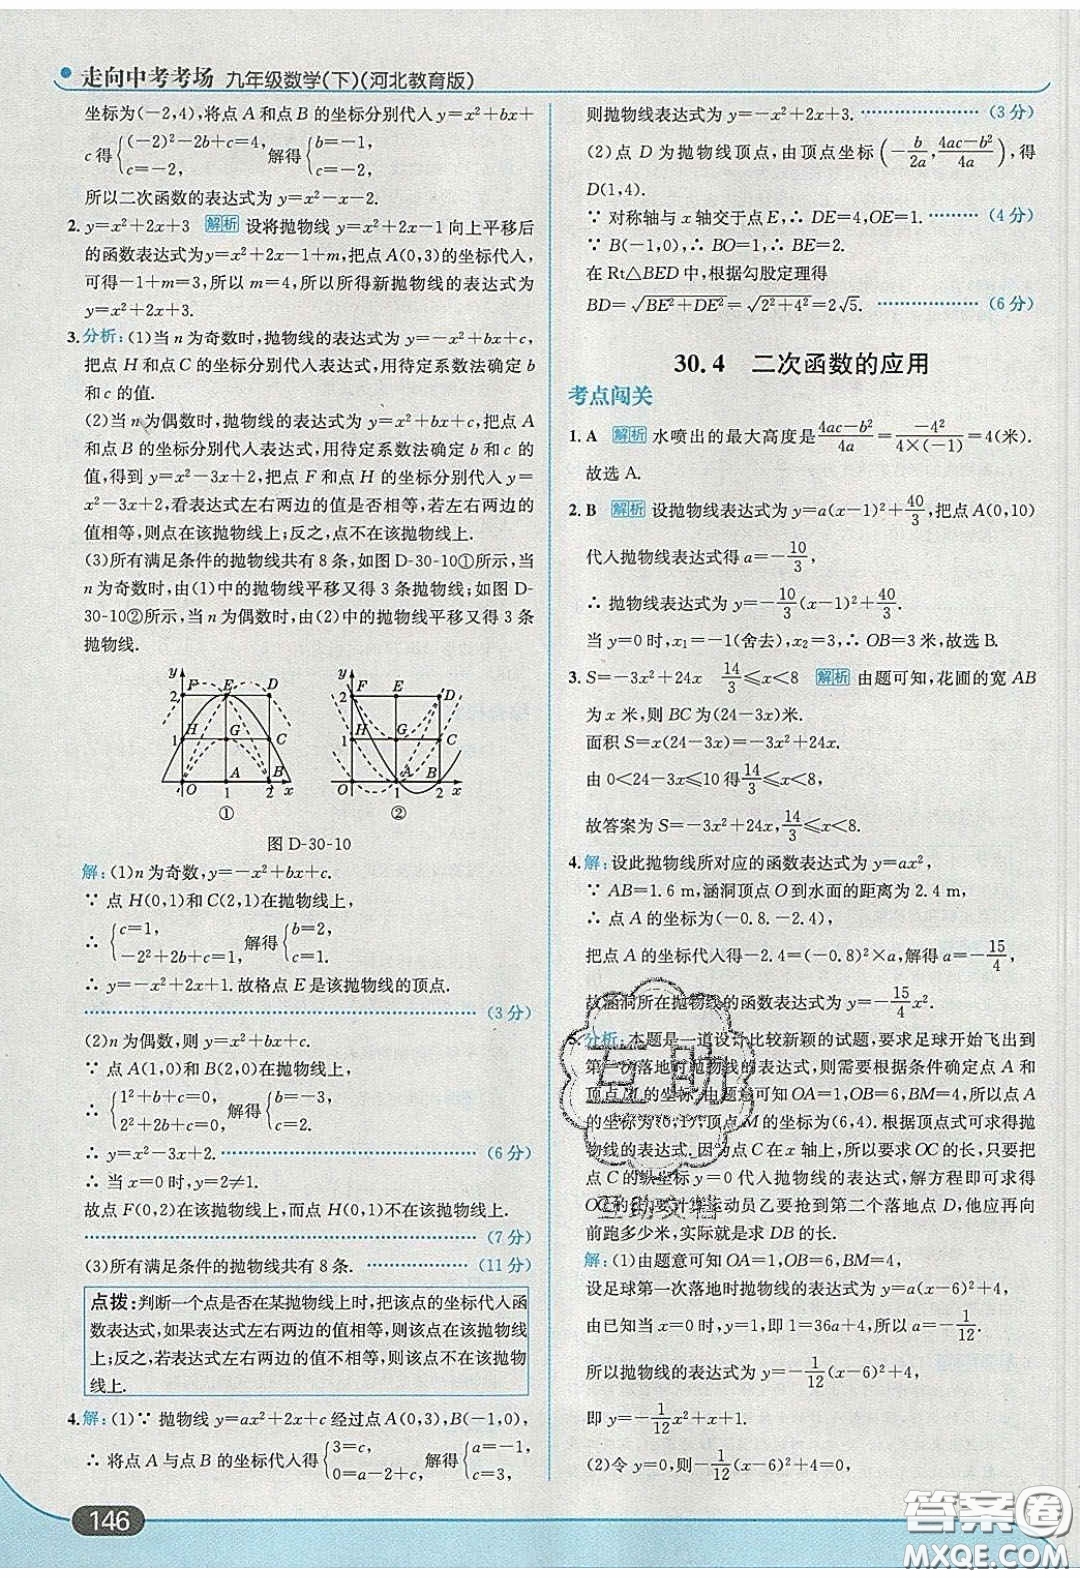 走向中考考场 九年级数学(下)(河北教育版)
坐标为(-2,4),将点 A 和点 B 的坐标分别代入 y=x²+bx+
c 得{(-2)²-2b+c=4, c=-2, 解得{b=-1, c=-2,
所以二次函数的表达式为 y=x²-x-2.
2. y=x²+2x+3 解析 设将抛物线 y=x²+2x-1 向上平移后
的函数表达式为 y=x²+2x-1+m,把点 A(0,3)的坐标代入,
可得-1+m=3,所以 m=4,所以所得新抛物线的表达式为
y=x²+2x+3.
3. 分析:(1)当 n 为奇数时,抛物线的表达式为 y=-x²+bx+c,
把点 H 和点 C 的坐标分别代入表达式,用待定系数法确定 b
和 c 的值.
(2)当 n 为偶数时,抛物线的表达式为 y=x²+bx+c,把点 A
和点 B 的坐标分别代入表达式,用待定系数法确定 b 和 c 的
值,得到 y=x²-3x+2,把点 F 和点 H 的坐标分别代入 y=
x²-3x+2,看表达式左右两边的值是否相等,若左右两边的
值相等,则点在该抛物线上;反之,点不在该抛物线上.
(3)所有满足条件的抛物线共有 8 条,如图 D-30-10①所示,当
n 为奇数时,由(1)中的抛物线平移又得 3 条抛物线;如图 D-
30-10②所示,当 n 为偶数时,由(2)中的抛物线平移又得 3 条
抛物线.
y 2 F E D 1 H G C O A B 1 2 x ①
y 2 F E D 1 H G C O A B 1 2 x ②
图 D-30-10
解:(1)n 为奇数,y=-x²+bx+c.
∵ 点 H(0,1)和 C(2,1)在抛物线上,
∴ {c=1, -2²+2b+c=1, 解得{b=2, c=1.
∴ y=-x²+2x+1. 故格点 E 是该抛物线的顶点.
(3 分)
(2)n 为偶数,则 y=x²+bx+c.
∵ 点 A(1,0)和 B(2,0)在抛物线上,
∴ {1²+b+c=0, 2²+2b+c=0, 解得{b=-3, c=2.
∴ y=x²-3x+2. (6 分)
∴ 当 x=1 时,y=2≠1.
故点 F(0,2)在该抛物线上,而点 H(0,1)不在该抛物线上.
(7 分)
(3)所有满足条件的抛物线共有 8 条. (11 分)
点拨:判断一个点是否在某抛物线上时,把该点的坐标代入函
数表达式,如果表达式左右两边的值相等,则该点在该抛物线
上;反之,若表达式左右两边的值不相等,则该点不在该抛物
线上.
4. 解:(1)∵ 抛物线 y=ax²+2x+c 经过点 A(0,3),B(-1,0),
∴ 将点 A 与点 B 的坐标代入得{3=c, 0=a-2+c, 解得{a=-1, c=3,
146
则抛物线表达式为 y=-x²+2x+3. (3 分)
(2)点 D 为抛物线顶点,由顶点坐标(-b/2a, 4ac-b²/4a),得
D(1,4).
∵ 对称轴与 x 轴交于点 E,∴ DE=4,OE=1. (4 分)
∵ B(-1,0),∴ BO=1,∴ BE=2.
在 Rt△BED 中,根据勾股定理得
BD=√BE²+DE²=√2²+4²=2√5. (6 分)
30.4 二次函数的应用
考点闯关
1. A 解析 水喷出的最大高度是4ac-b²/4a=-4²/4×(-1)=4(米).
故选 A.
2. B 解析 设抛物线表达式为 y=a(x-1)²+40/3,把点 A(0,10)
代入抛物线表达式得 a=-10/3,
∴ 抛物线表达式为 y=-10/3(x-1)²+40/3.
当 y=0 时,x₁=-1(舍去),x₂=3,∴ OB=3 米,故选 B.
3. S=-3x²+24x 14/3≤x<8 解析 由题可知,花圃的宽 AB
为 x 米,则 BC 为(24-3x)米.
面积 S=x(24-3x)=-3x²+24x.
由 0<24-3x≤10 得14/3≤x<8.
故答案为 S=-3x²+24x,14/3≤x<8.
4. 解:设此抛物线所对应的函数表达式为 y=ax²,
∵ AB=1.6 m,涵洞顶点 O 到水面的距离为 2.4 m,
∴ 点 A 的坐标为(-0.8,-2.4),
把点 A 的坐标代入得-2.4=(-0.8)²×a,解得 a=-15/4,
故涵洞所在抛物线的函数表达式为 y=-15/4x².
5. 分析:本题是一道设计比较新颖的试题,要求足球开始飞出到
第一次落地时抛物线的表达式,需要根据条件确定点 A 和
顶点 M 的坐标,由题意可知 OA=1,OB=6,BM=4,所以点 A
的坐标为(0,1),顶点 M 的坐标为(6,4).根据顶点式可求得抛
物线的表达式.因为点 C 在 x 轴上,所以要求 OC 的长,只要把
点 C 的纵坐标 y=0 代入抛物线的表达式,解方程即可求得
OC.要计算运动员乙要抢到第二个落地点 D,他应再向
前跑多少米,实际就是求 DB 的长.
解:(1)由题意可知 OA=1,OB=6,BM=4,
设足球第一次落地时抛物线的表达式为 y=a(x-6)²+4,
由已知当 x=0 时,y=1,即 1=36a+4,所以 a=-1/12.
所以抛物线的表达式为 y=-1/12(x-6)²+4,
即 y=-1/12x²+x+1.
(2)令 y=0,则-1/12(x-6)²+4=0,
互助
互助文档
答案圈
MXQE.COM